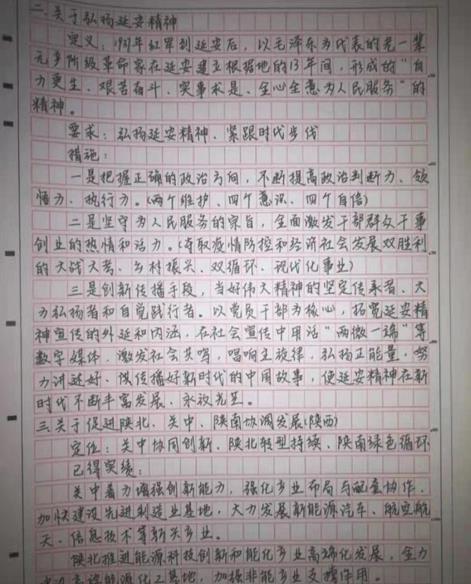 二.关于弘扬延安精神
定义:1935年红军到延安后,以毛泽东为代表的老一辈
无产阶级革命家在延安建立根据地的13年间,形成的“自
力更生、艰苦奋斗、实事求是、全心全意为人民服务”的
精神。
要求:弘扬延安精神、紧跟时代步伐
措施:
一是把握正确的政治方向,不断提高政治判断力、领
悟力、执行力。(两个维护、四个意识、四个自信)
二是坚守为人民服务的宗旨,全面激发干部群众干事
创业的热情和活力。(夺取疫情防控和经济社会发展双胜利
的大战大考、乡村振兴、双循环、现代化事业)
三是创新传播手段,当好伟大精神的坚定传承者、大
力弘扬者和自觉践行者。以党员干部为核心,拓宽延安精
神宣传的外延和内涵,在社会宣传中用活“两微一端”等
数字媒体,激发社会共鸣,唱响主旋律,弘扬正能量,努
力讲述好、传播好新时代的中国故事,使延安精神在新
时代不断丰富发展、永放光芒。
三.关于促进陕北、关中、陕南协调发展(陕西)
定位:关中协同创新、陕北转型持续、陕南绿色循环
已得实绩:
关中着力增强创新能力,强化产业布局与配套协作,
加快建设先进制造业基地,大力发展新能源汽车、航空航
天、信息技术等新兴产业。
陕北推进能源科技创新和能化产业高端化发展,全力
高端能源化工基地,加强非能产业支撑作用